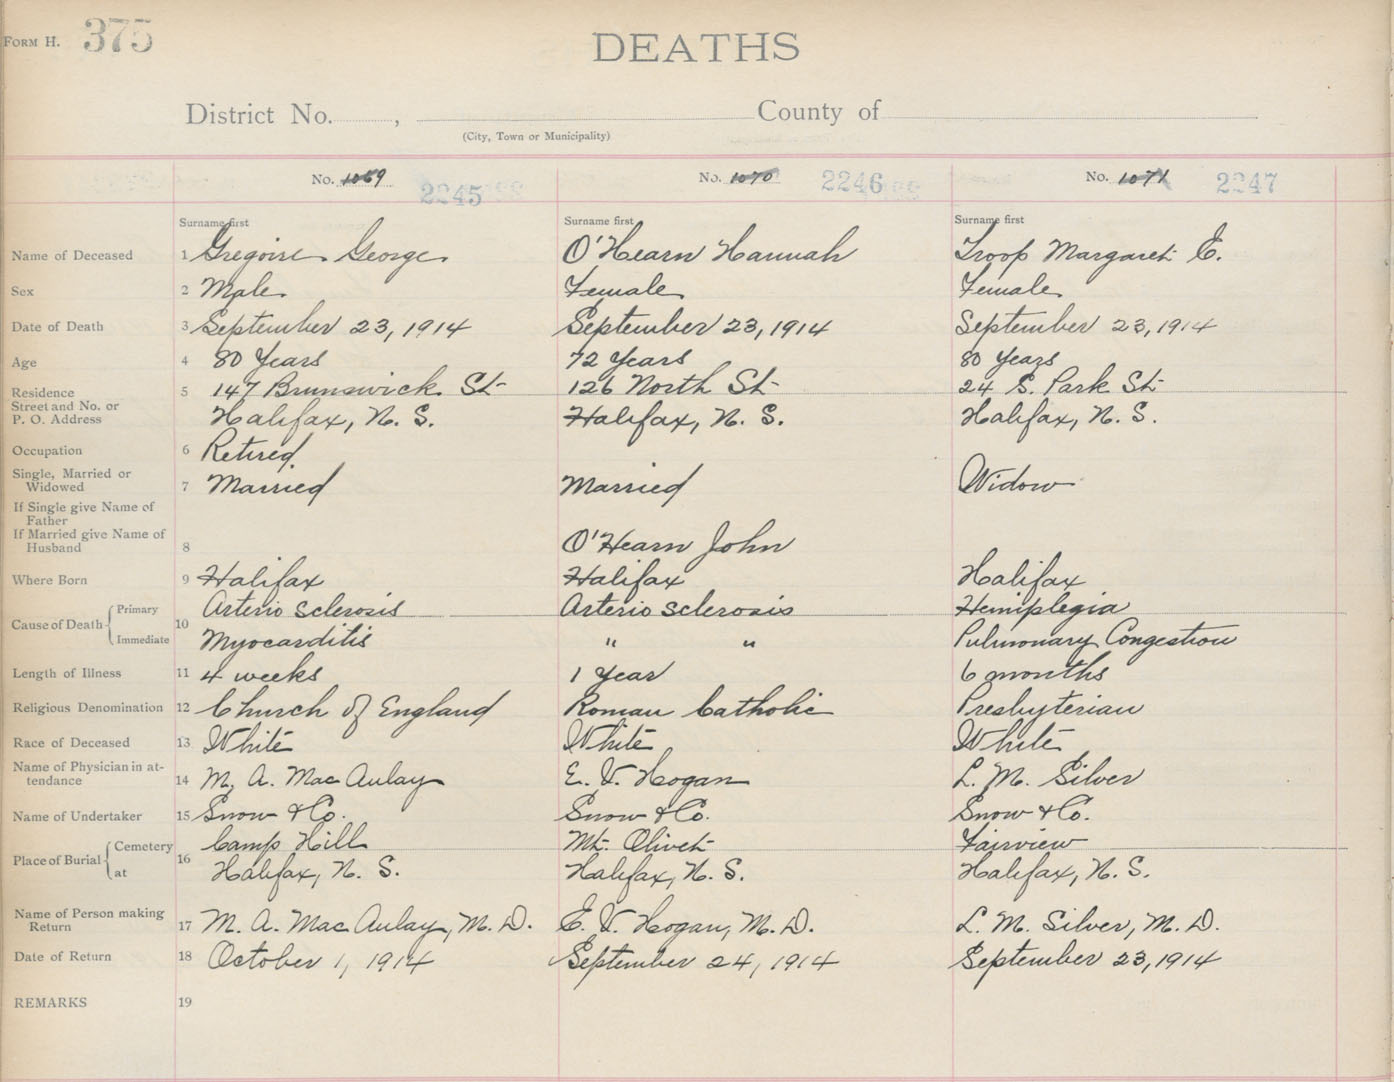 FORM H. 375
DEATHS
District No. , County of
(City, Town or Municipality)
No. 1069 2245 No. 1070 2246 No. 1071 2247
Surname first Surname first Surname first
Name of Deceased 1 Gregoire George O'Hearn Hannah Troop Margaret E.
Sex 2 Male Female Female
Date of Death 3 September 23, 1914 September 23, 1914 September 23, 1914
Age 4 80 Years 72 Years 80 years
Residence 5 147 Brunswick St 126 North St 24 S. Park St
Street and No. or
P. O. Address Halifax, N. S. Halifax, N. S. Halifax, N. S.
Occupation 6 Retired
Single, Married or
Widowed 7 Married Married Widow
If Single give Name of
Father
If Married give Name of
Husband 8 O'Hearn John
Where Born 9 Halifax Halifax Halifax
Cause of Death 10 Primary Arterio Sclerosis Arterio Sclerosis Hemiplegia
Immediate Myocarditis " " Pulmonary Congestion
Length of Illness 11 4 weeks 1 Year 6 months
Religious Denomination 12 Church of England Roman Catholic Presbyterian
Race of Deceased 13 White White White
Name of Physician in at-
tendance 14 M. A. MacAulay E. V. Hogan L. M. Silver
Name of Undertaker 15 Snow & Co. Snow & Co. Snow & Co.
Place of Burial 16 Cemetery Camp Hill Mt. Olivet Fairview
at Halifax, N. S. Halifax, N. S. Halifax, N. S.
Name of Person making
Return 17 M. A. MacAulay, M. D. E. V. Hogan, M. D. L. M. Silver, M. D.
Date of Return 18 October 1, 1914 September 24, 1914 September 23, 1914
REMARKS 19